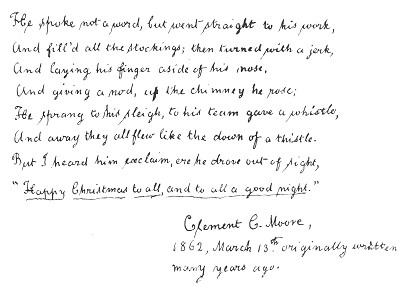 He spoke not a word, but went straight to his work,
And fill'd all the stockings; then turned with a jerk,
And laying his finger aside of his nose,
And giving a nod, up the chimney he rose;
He sprang to his sleigh, to his team gave a whistle,
And away they all flew like the down of a thistle.
But I heard him exclaim, ere he drove out of sight,
"Happy Christmas to all, and to all a good night."
Clement C. Moore,
1862, March 13th originally written
many years ago.